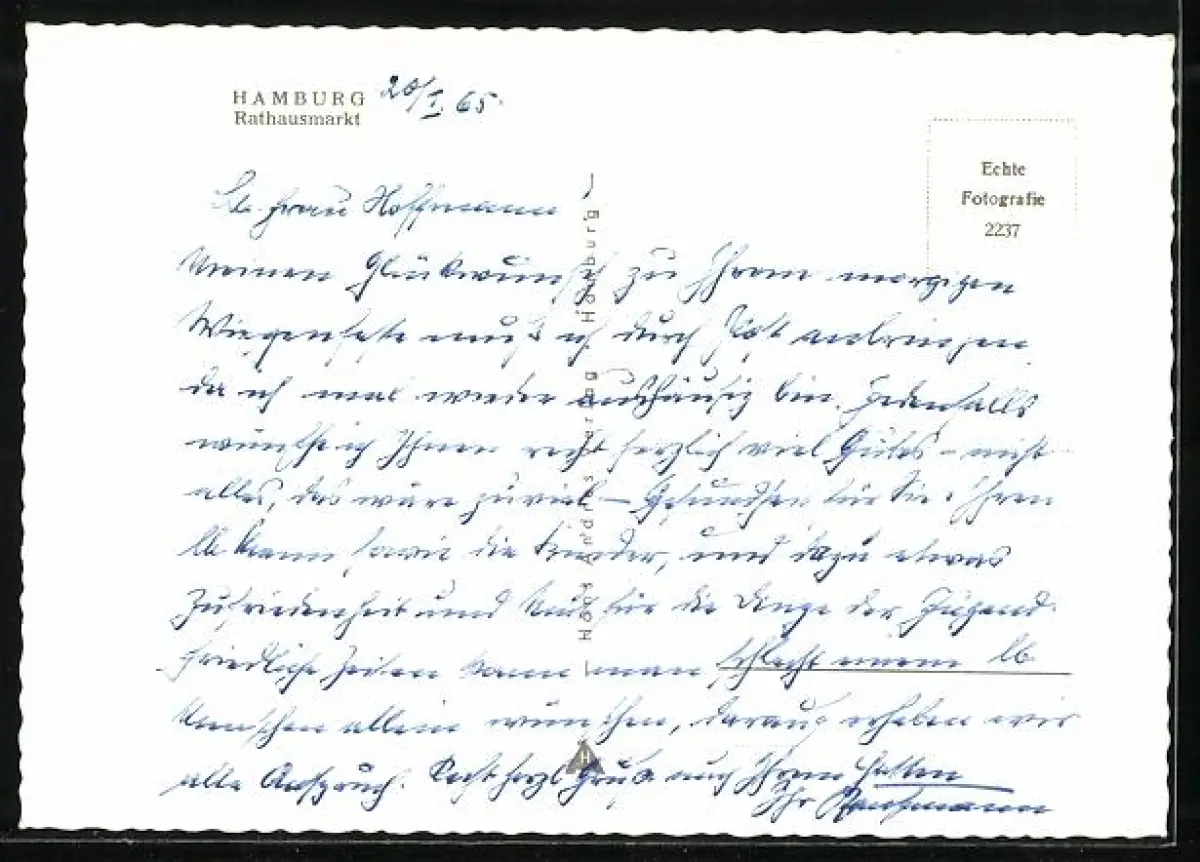 HAMBURG 20/I. 65.
Rathausmarkt
Echte
Fotografie
2237
Lb. Frau Hoffmann
Meinen Glückwunsch zu Ihrem morgigen
Wiegenfeste muß ich durch Post anbringen
da ich mal wieder aushäusig bin. Jedenfalls
wünsche ich Ihnen recht herzlich viel Gutes – nicht
alles, das wäre zuviel – Gesundheit für Sie, Ihren
lb. Mann sowie die Kinder, und dazu etwas
Zufriedenheit und für die Dinge der Jugend.
Friedliche Zeiten kann man schlecht einem lb
Menschen allein wünschen, darauf erheben wir
alle Anspruch. Recht herzl. Gruß auch Ihrem Gatten
Ihr